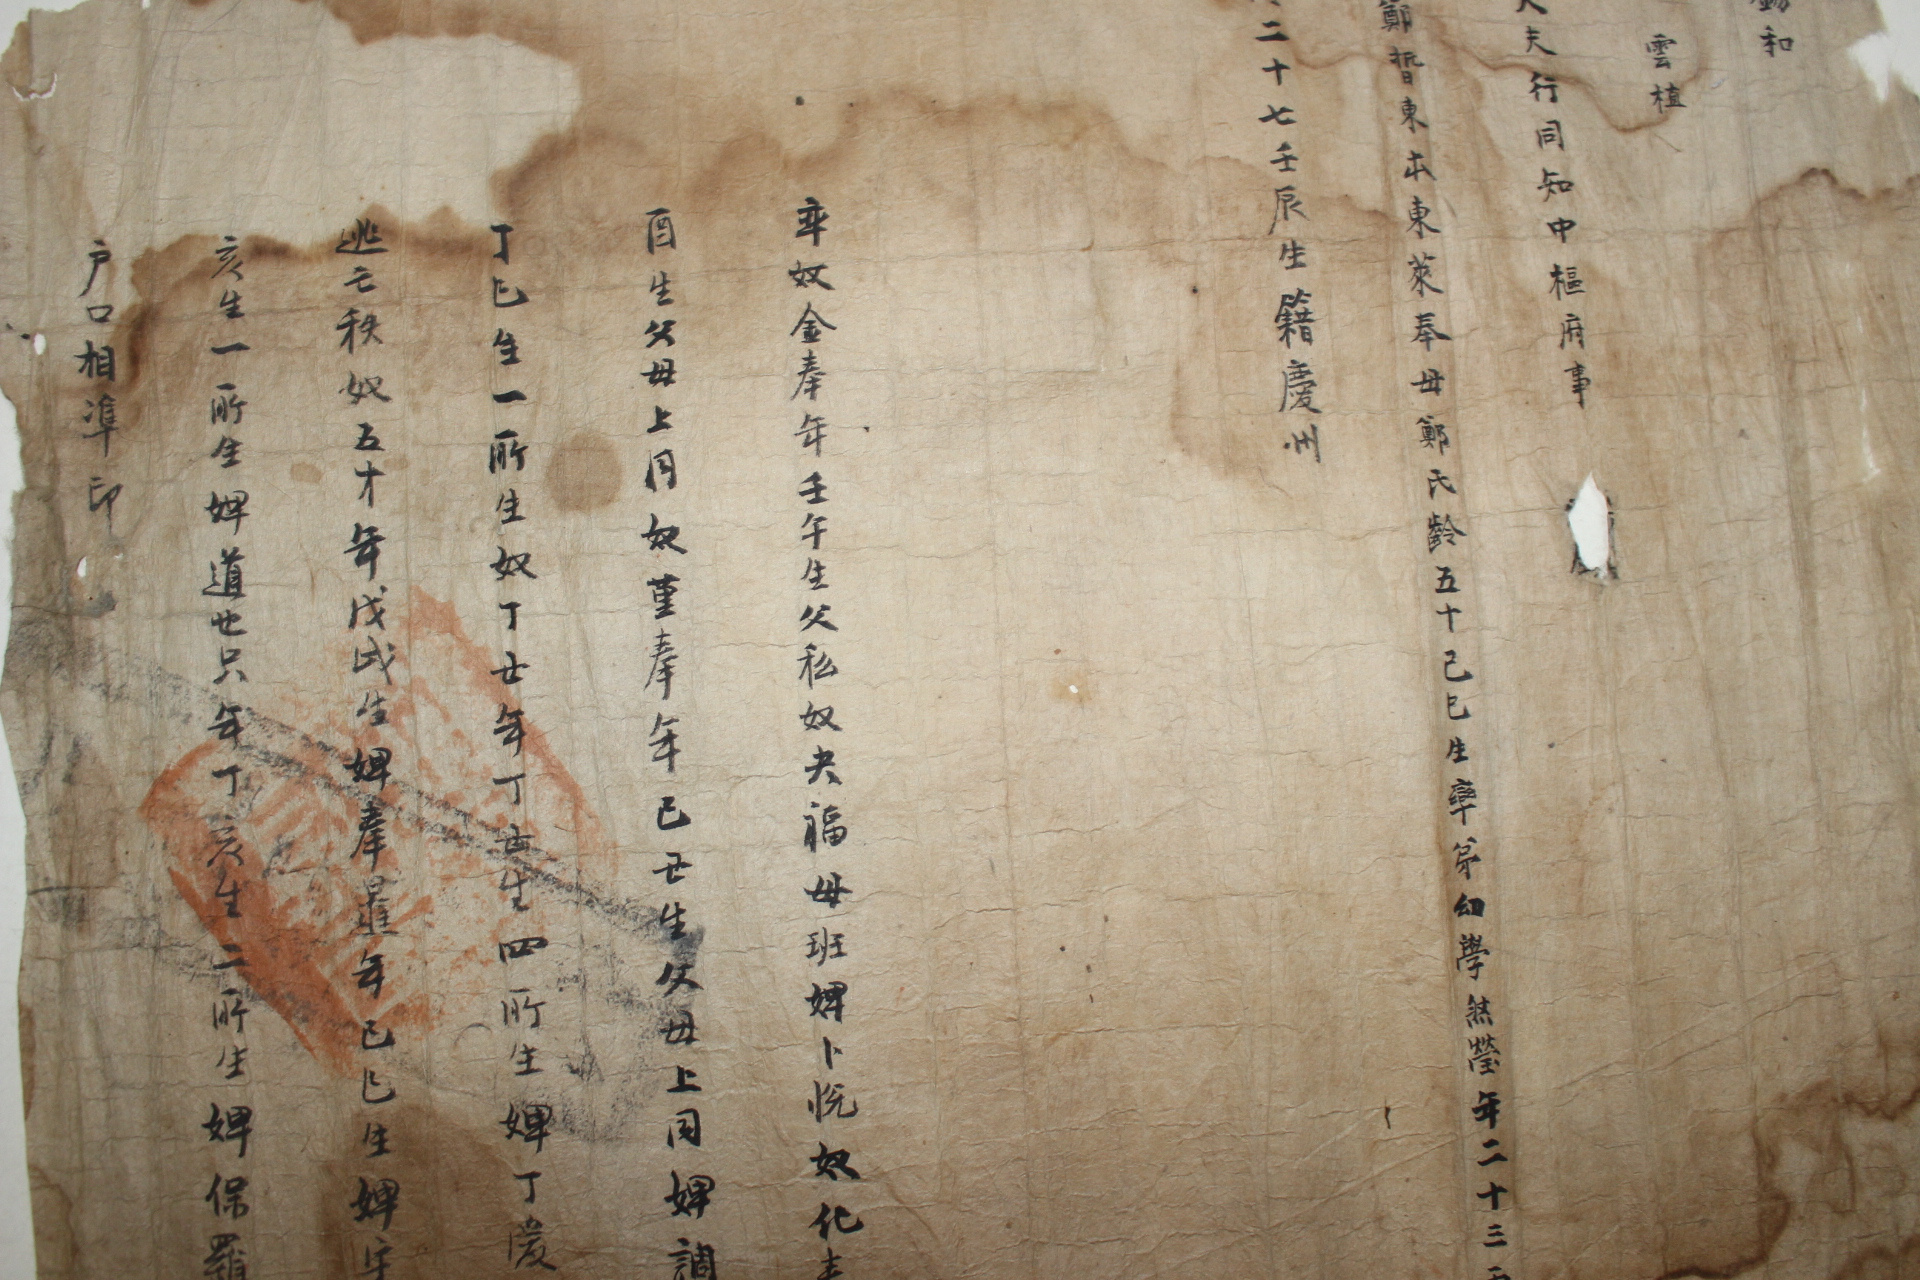 和
雲植
夫行同知中樞府事
鄭晢東本東萊奉母鄭氏齡五十己巳生率弟幼學然瑩年二十三
二十七壬辰生籍慶州
率奴金奉年壬午生父私奴夫福母班婢卜悅奴化
酉生父母上同奴堇奉年己丑生父母上同婢調
丁巳生一所生奴丁丑年丁丑生四所生婢丁
逃亡秩奴五才年戊戌生婢奉暹年己巳生婢
亥生一所生婢道也只年丁亥生二所生婢保羅
戶口相準印